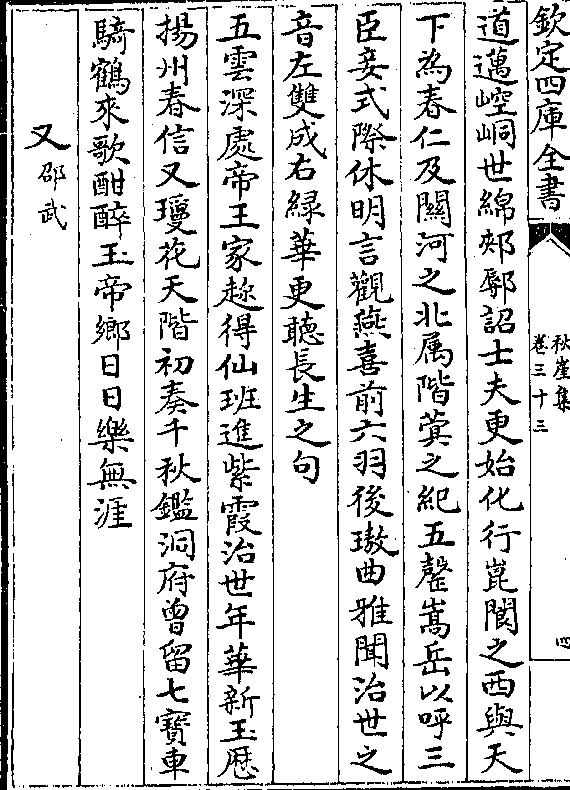 欽定四庫全書
秋崖集
卷三十三
四
道邁崆峒世綿郟鄏詔士夫更始化行崑閬之西與天
下為春仁及關河之北属階蓂之紀五罄嵩岳以呼三
臣妾式際休明言觀燕喜前六羽後璈曲雅聞治世之
音左雙成右緑華更聽長生之句
五雲深處帝王家趂得仙班進紫霞治世年華新玉厯
揚州春信又瓊花天階初奏千秋鑑洞府曾留七寳車
騎鶴來歌酣醉玉帝鄉日日樂無涯
又邵武